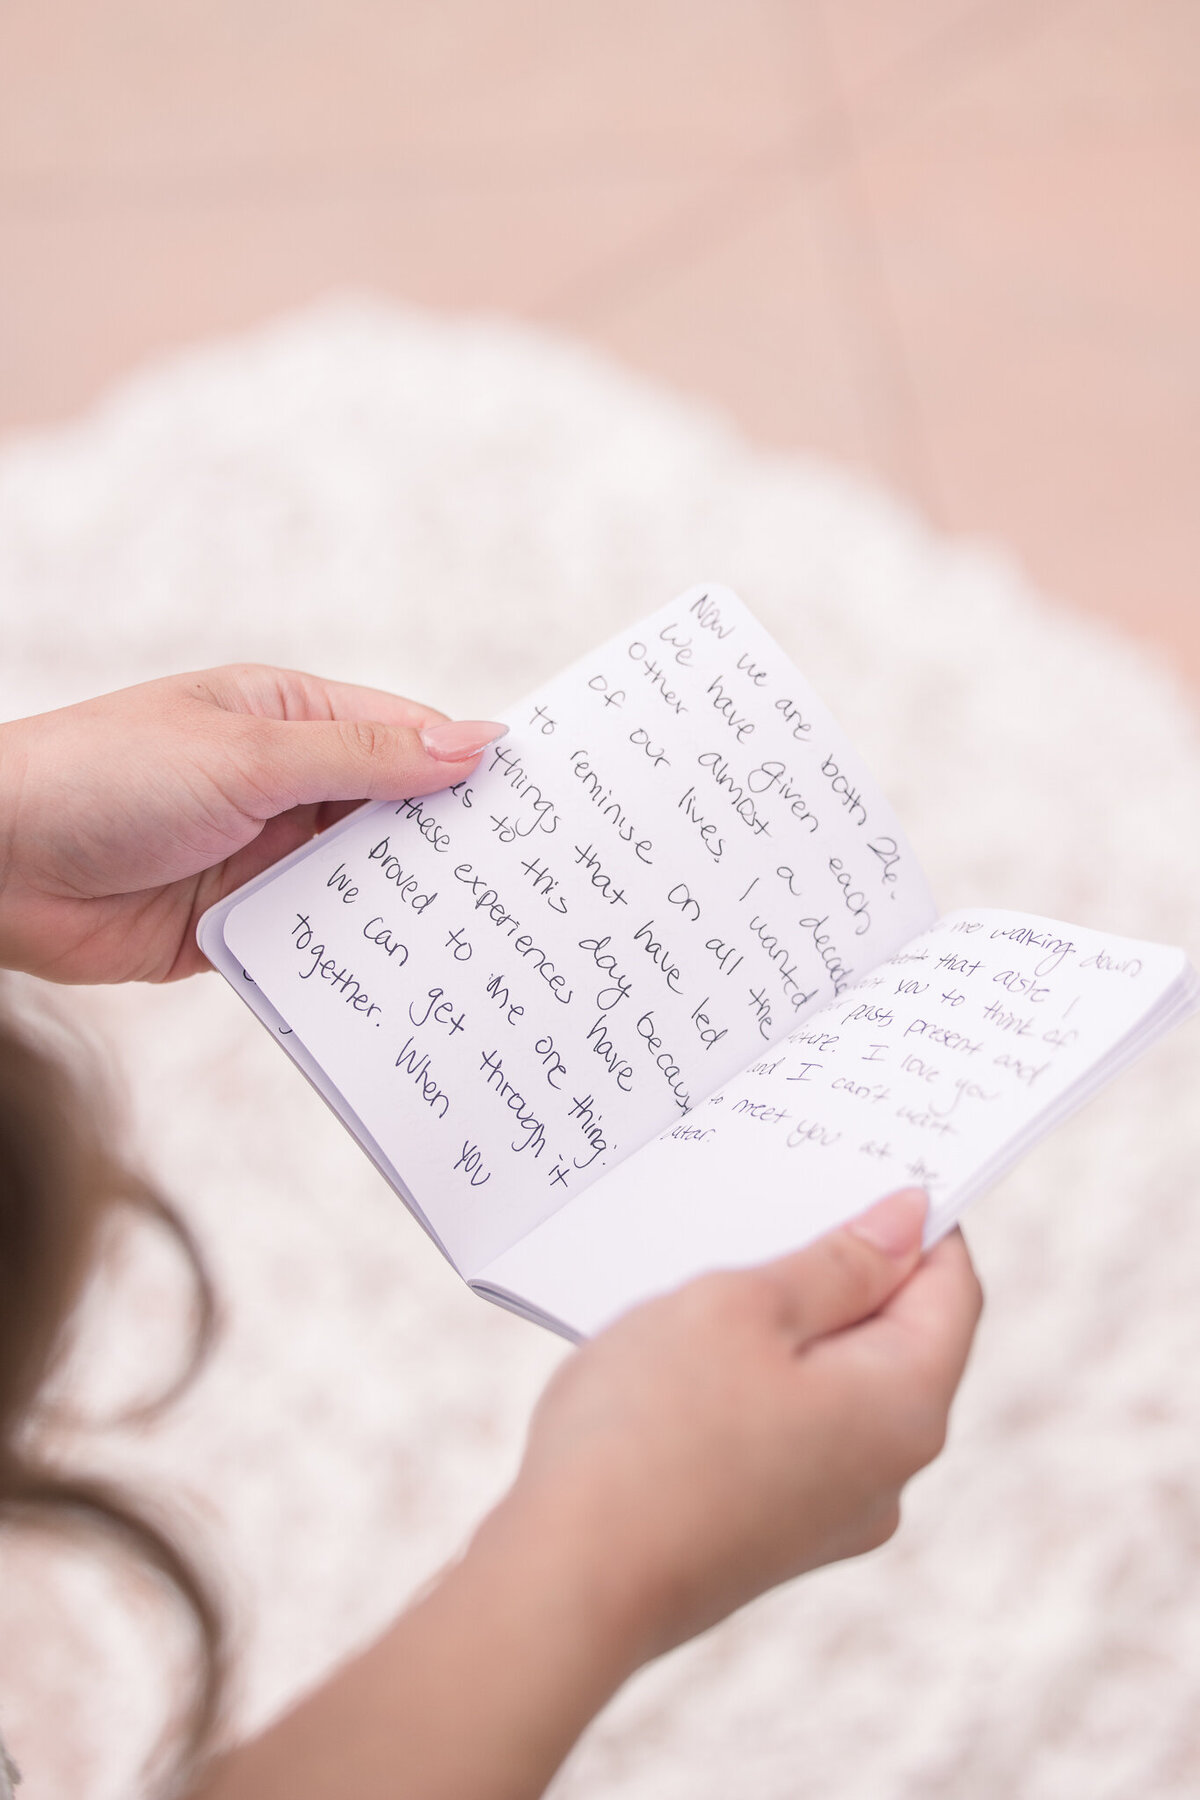 Now we are both 26.
We have given each
other almost a decade
of our lives. I wanted
to reminise on all the
things that have led
us to this day because
these experiences have
proved to me one thing:
We can get through it
together. When you
me walking down
that aisle I
you to think of
past, present and
future. I love you
and I can't wait
to meet you at the
altar.